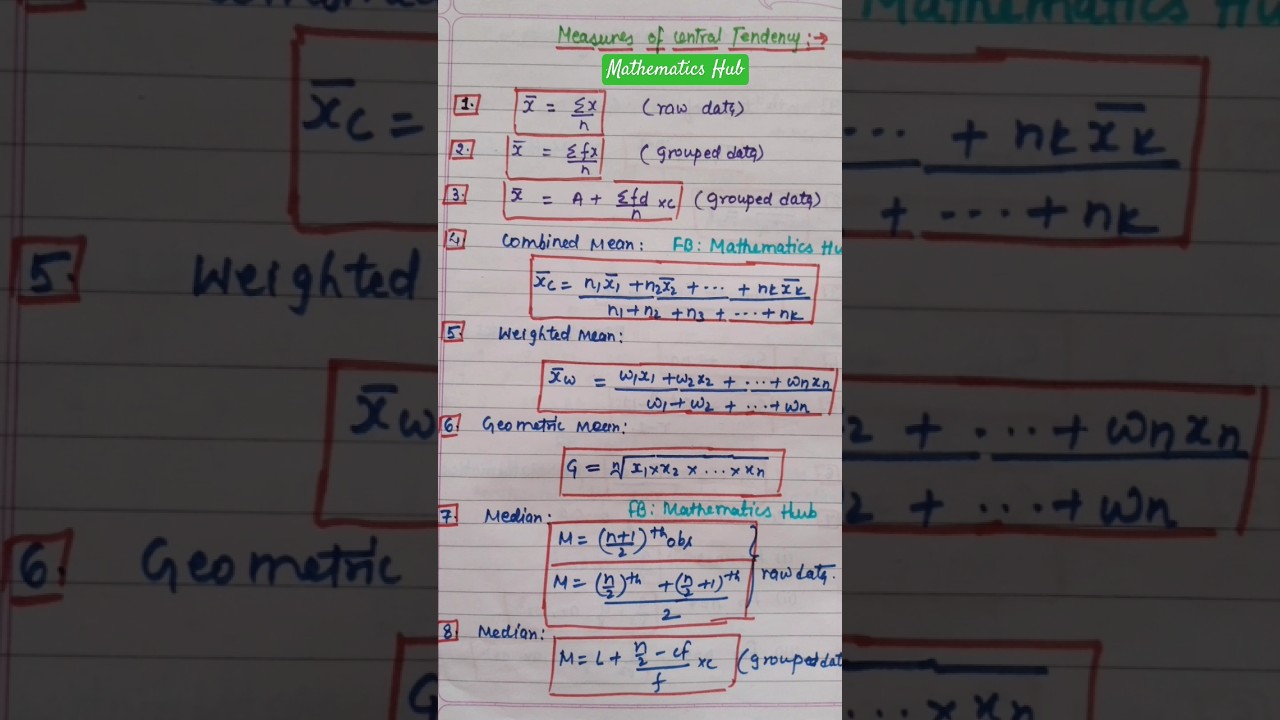 Measures of central Tendency :→
Mathematics Hub
1. x̄ = Σx/n (raw data)
2. x̄ = Σfx/n (grouped data)
3. x̄ = A + Σfd/n ×c (grouped data)
4 Combined Mean: FB: Mathematics Hu
x̄c = n₁x̄₁ + n₂x̄₂ + ... + nₖx̄ₖ
n₁ + n₂ + n₃ + ... + nₖ
5. Weighted Mean:
x̄w = w₁x₁ + w₂x₂ + ... + wnxn
w₁ + w₂ + ... + wn
6. Geometric Mean:
G = ⁿ√x₁ × x₂ × ... × xn
7. Median: FB: Mathematics Hub
M = (n+1/2)th obs
M = (n/2)th + (n/2 + 1)th
2
raw data.
8. Median:
M = L + n/2 - cf/f ×c (grouped dat